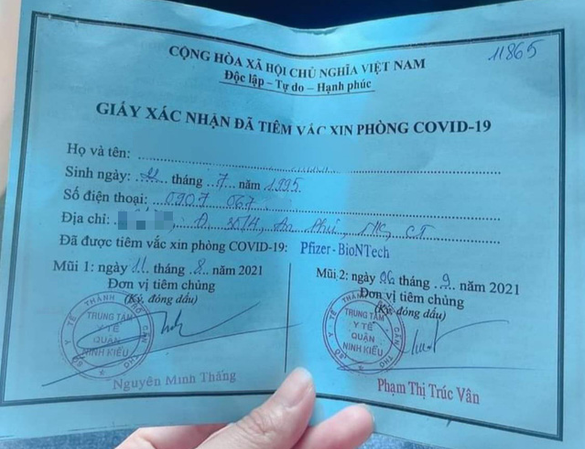 11865
CỘNG HÒA XÃ HỘI CHỦ NGHĨA VIỆT NAM
Độc lập - Tự do - Hạnh phúc
GIẤY XÁC NHẬN ĐÃ TIÊM VẮC XIN PHÒNG COVID-19
Họ và tên:
Sinh ngày: 11 tháng 7 năm 1995
Số điện thoại: 0907 067
Địa chỉ: Đ 30/4, An Phú, NK, CT
Đã được tiêm vắc xin phòng COVID-19: Pfizer - BioNTech
Mũi 1: ngày 11 tháng 8 năm 2021
Đơn vị tiêm chủng
(Ký, đóng dấu)
SỞ Y TẾ THÀNH PHỐ CẦN THƠ
TRUNG TÂM
Y TẾ
QUẬN
NINH KIỀU
Nguyễn Minh Thăng
Mũi 2: ngày 26 tháng 9 năm 2021
Đơn vị tiêm chủng
(Ký, đóng dấu)
SỞ Y TẾ THÀNH PHỐ CẦN THƠ
TRUNG TÂM
Y TẾ
QUẬN
NINH KIỀU
Phạm Thị Trúc Vân